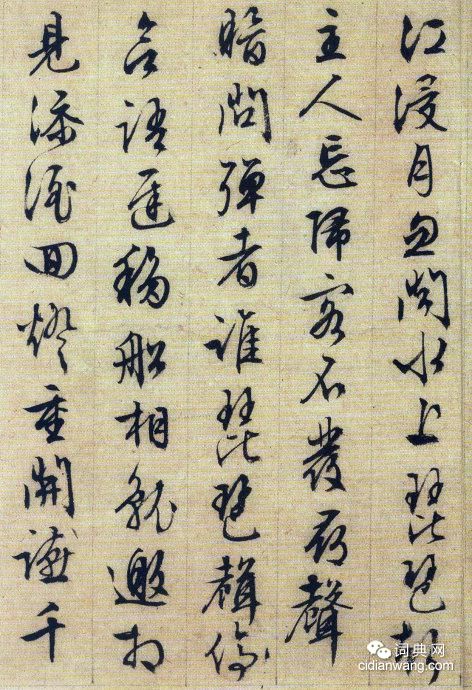 江浸月忽聞水上琵琶聲
主人忘歸客不發尋聲
暗問彈者誰琵琶聲停
語遲移船相就邀相
見添酒回燈重開讌千
词典网
cidianwang.com